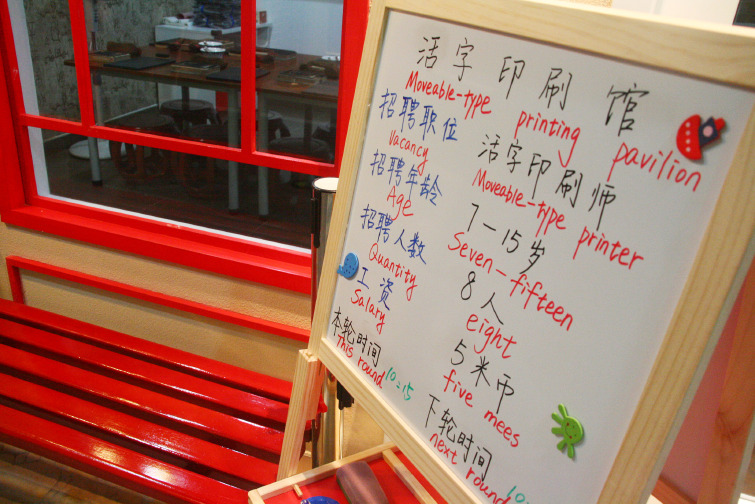 活字印刷馆
Moveable-type printing pavilion
招聘职位 活字印刷师
Vacancy Moveable-type printer
招聘年龄 7-15岁
Age Seven-fifteen
招聘人数 8人
Quantity eight
工资 5米币
Salary five mees
本轮时间 10:15 下轮时间
This round next round